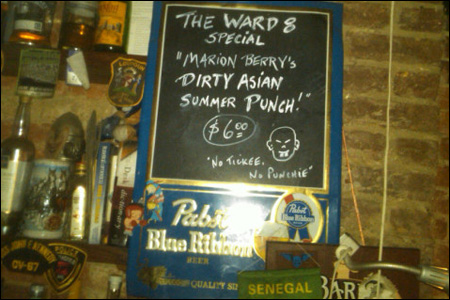 THE WARD 8
SPECIAL
"MARION BERRY'S
DIRTY ASIAN
SUMMER PUNCH!"
$6.00
"NO TICKEE,
NO PUNCHIE"
Pabst
Blue Ribbon
BEER
QUALITY
Pabst
Blue Ribbon
SENEGAL
BAR